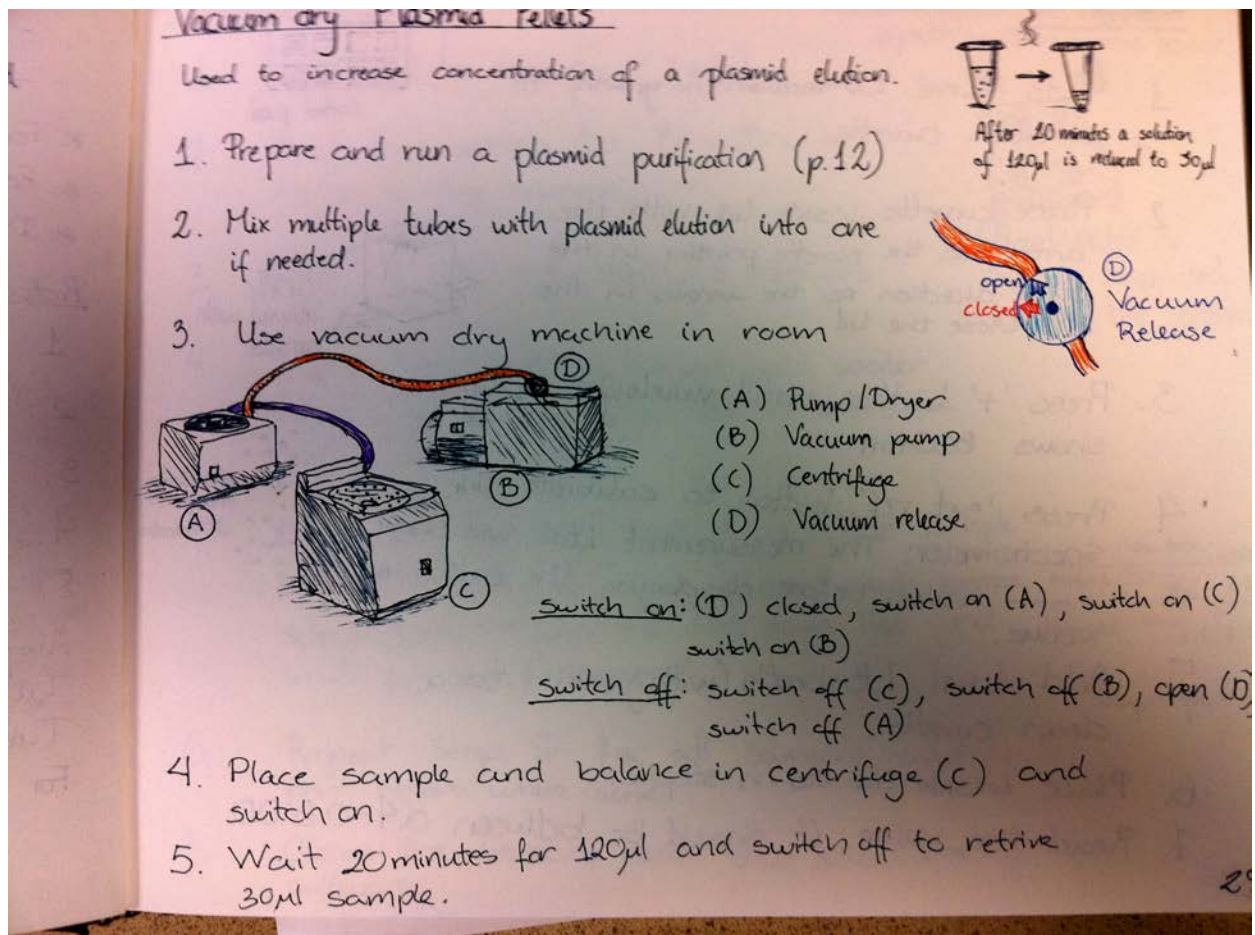 Vacuum dry Plasmid Pellets
Used to increase concentration of a plasmid elution.
After 20 minutes a solution
of 120µl is reduced to 30µl
1. Prepare and run a plasmid purification (p.12)
2. Mix multiple tubes with plasmid elution into one
if needed.
open
closed
(D)
Vacuum
Release
3. Use vacuum dry machine in room
(D)
(A)
(B)
(C)
(A) Pump/Dryer
(B) Vacuum pump
(C) Centrifuge
(D) Vacuum release
switch on: (D) closed, switch on (A), switch on (C)
switch on (B)
switch off: switch off (C), switch off (B), open (D)
switch off (A)
4. Place sample and balance in centrifuge (C) and
switch on.
5. Wait 20 minutes for 120µl and switch off to retrive
30µl sample.